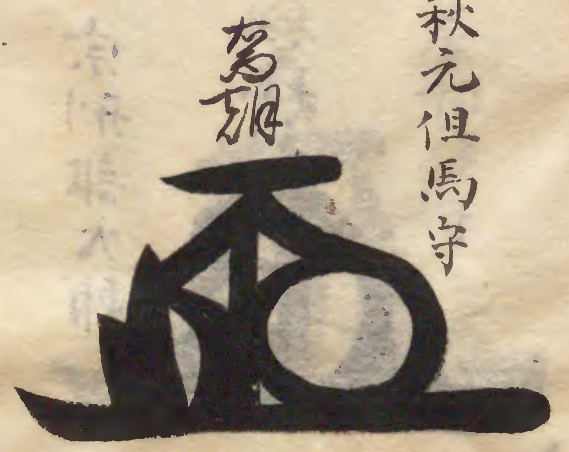 秋元但馬守
喬朝